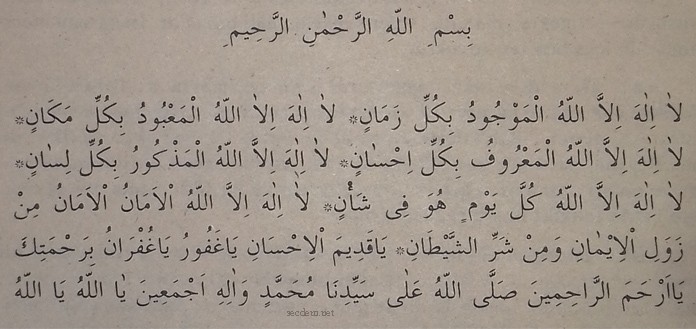 بِسْمِ اللّٰهِ الرَّحْمٰنِ الرَّحِيمِ
لاٰ اِلٰهَ اِلاَّ اللّٰهُ الْمَوْجُودُ بِكُلِّ زَمَانٍ* لاٰ اِلٰهَ اِلاٰ اللّٰهُ الْمَعْبُودُ بِكُلِّ مَكَانٍ*
لاٰ اِلٰهَ اِلاَّ اللّٰهُ الْمَعْرُوفُ بِكُلِّ اِحْسٰانٍ* لاٰ اِلٰهَ اِلاَّ اللّٰهُ الْمَذْكُورُ بِكُلِّ لِسٰانٍ*
لاٰ اِلٰهَ اِلاَّ اللّٰهُ كُلَّ يَوْمٍ هُوَ فِى شَأْنٍ* لاٰ اِلٰهَ اِلاَّ اللّٰهُ اْلاَمَانُ اْلاَمَانُ مِنْ
زَوَلِ اْلاِيْمٰانِ وَمِنْ شَرِّ الشَّيْطَانِ* يَاقَدِيمَ اْلاِحْسَانِ يَاغَفُورُ يَاغُفْرَانُ بِرَحْمَتِكَ
يَااَرْحَمَ الرَّاحِمِينَ صَلَّى اللّٰهُ عَلٰى سَيِّدِنَا مُحَمَّدٍ وَاٰلِهِ اَجْمَعِينَ يٰا اللّٰهُ يَا اللّٰهُ
secdem.net